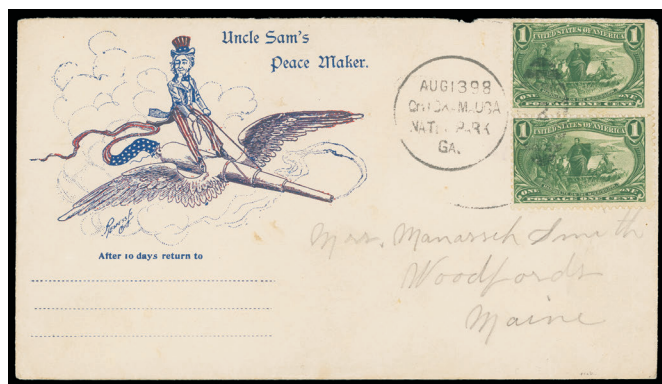 Uncle Sam's
Peace Maker.
AUG 13 98
CHICKAMAUGA
NAT'L PARK
GA.
1 UNITED STATES OF AMERICA 1
ONE POSTAGE ONE CENT ONE
1 UNITED STATES OF AMERICA 1
ONE POSTAGE ONE CENT ONE
After 10 days return to
Mrs. Manasseh Smith
Woodfords
Maine